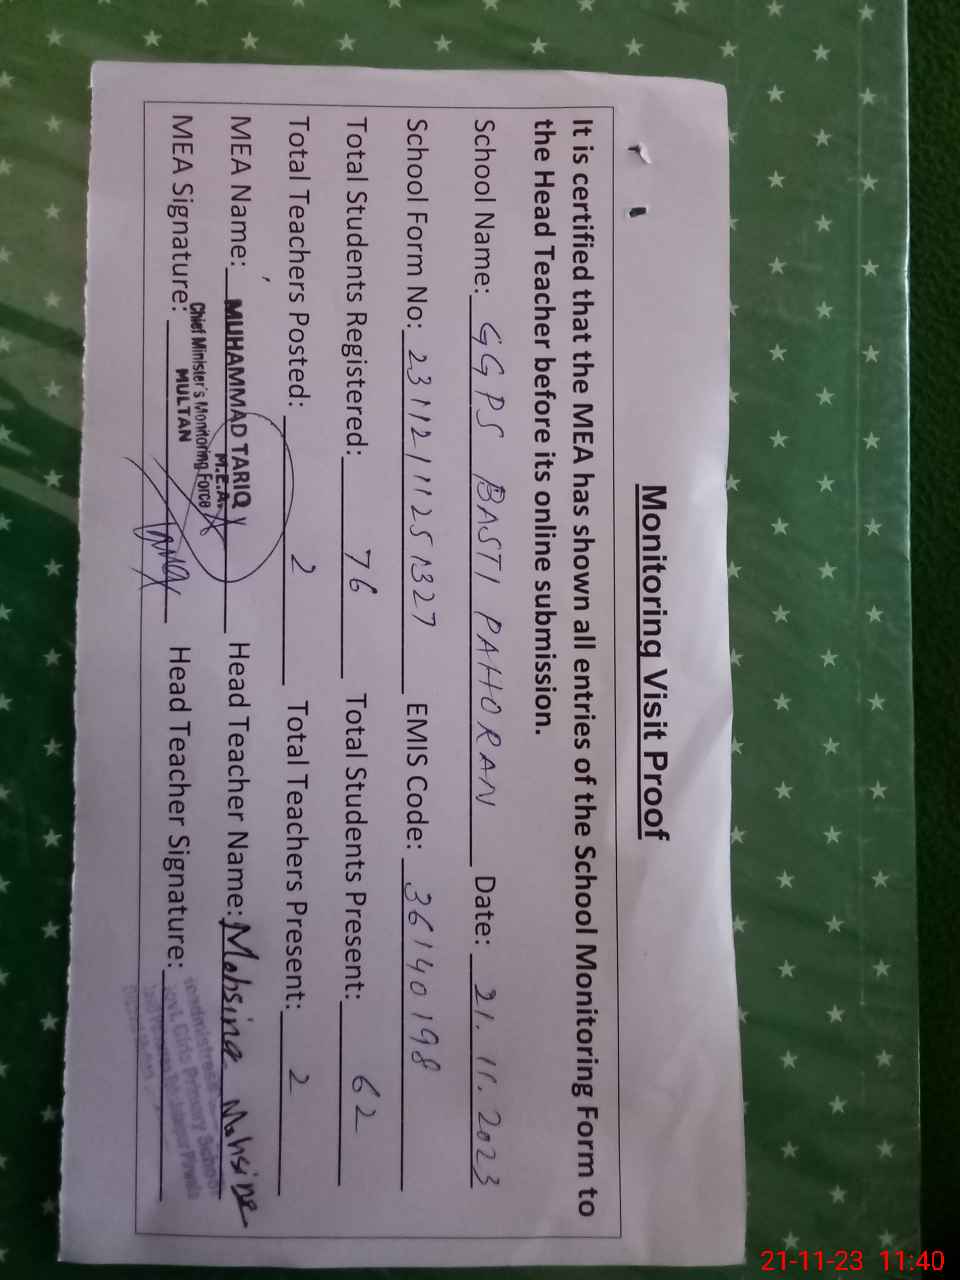 Monitoring Visit Proof
It is certified that the MEA has shown all entries of the School Monitoring Form to
the Head Teacher before its online submission.
School Name: GGPS BASTI PAHORAN Date: 21.11.2023
School Form No: 23112111251327 EMIS Code: 36140198
Total Students Registered: 76 Total Students Present: 62
Total Teachers Posted: 2 Total Teachers Present: 2
MEA Name: MUHAMMAD TARIQ Head Teacher Name: Mohsina Mohsina
M.E.A.
Chief Minister's Monitoring Force
MULTAN
MEA Signature: Head Teacher Signature:
Headmistress
Govt. Girls Primary School
21-11-23 11:40